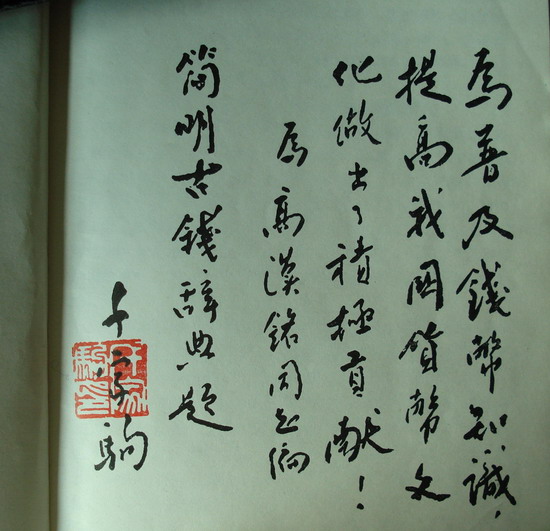 為普及錢幣知識，
提高我國貨幣文
化做出了積極貢獻！
為高漢銘同志編
簡明古錢辭典題
千家駒
千家駒印